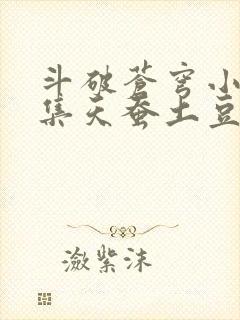 斗破苍穹小
集天蚕土豆
潋紫沫